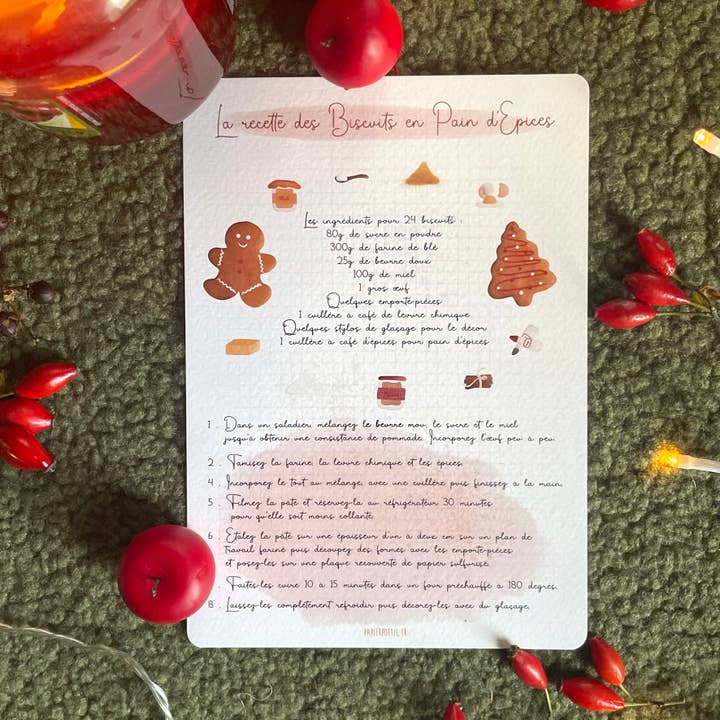 La recette des Biscuits en Pain d'Epices
Les ingrédients pour 24 biscuits :
80g de sucre en poudre
300g de farine de blé
25g de beurre doux
100g de miel
1 gros œuf
Quelques emporte-pièces
1 cuillère à café de levure chimique
Quelques stylos de glaçage pour le décor
1 cuillère à café d'épices pour pain d'épices
1 . Dans un saladier, mélangez le beurre mou, le sucre et le miel
jusqu'à obtenir une consistance de pommade. Incorporez l'œuf peu à peu.
2 . Tamisez la farine, la levure chimique et les épices.
4 . Incorporez le tout au mélange, avec une cuillère puis finissez à la main.
5 . Filmez la pâte et réservez-la au réfrigérateur 30 minutes
pour qu'elle soit moins collante.
6 . Etalez la pâte sur une épaisseur d'un à deux cm sur un plan de
travail fariné puis découpez des formes avec les emporte-pièces
et posez-les sur une plaque recouverte de papier sulfurisé.
. Faites-les cuire 10 à 15 minutes dans un four préchauffé à 180 degrés.
8 . Laissez-les complètement refroidir puis décorez-les avec du glaçage.
PAPIERPOETIE.FR